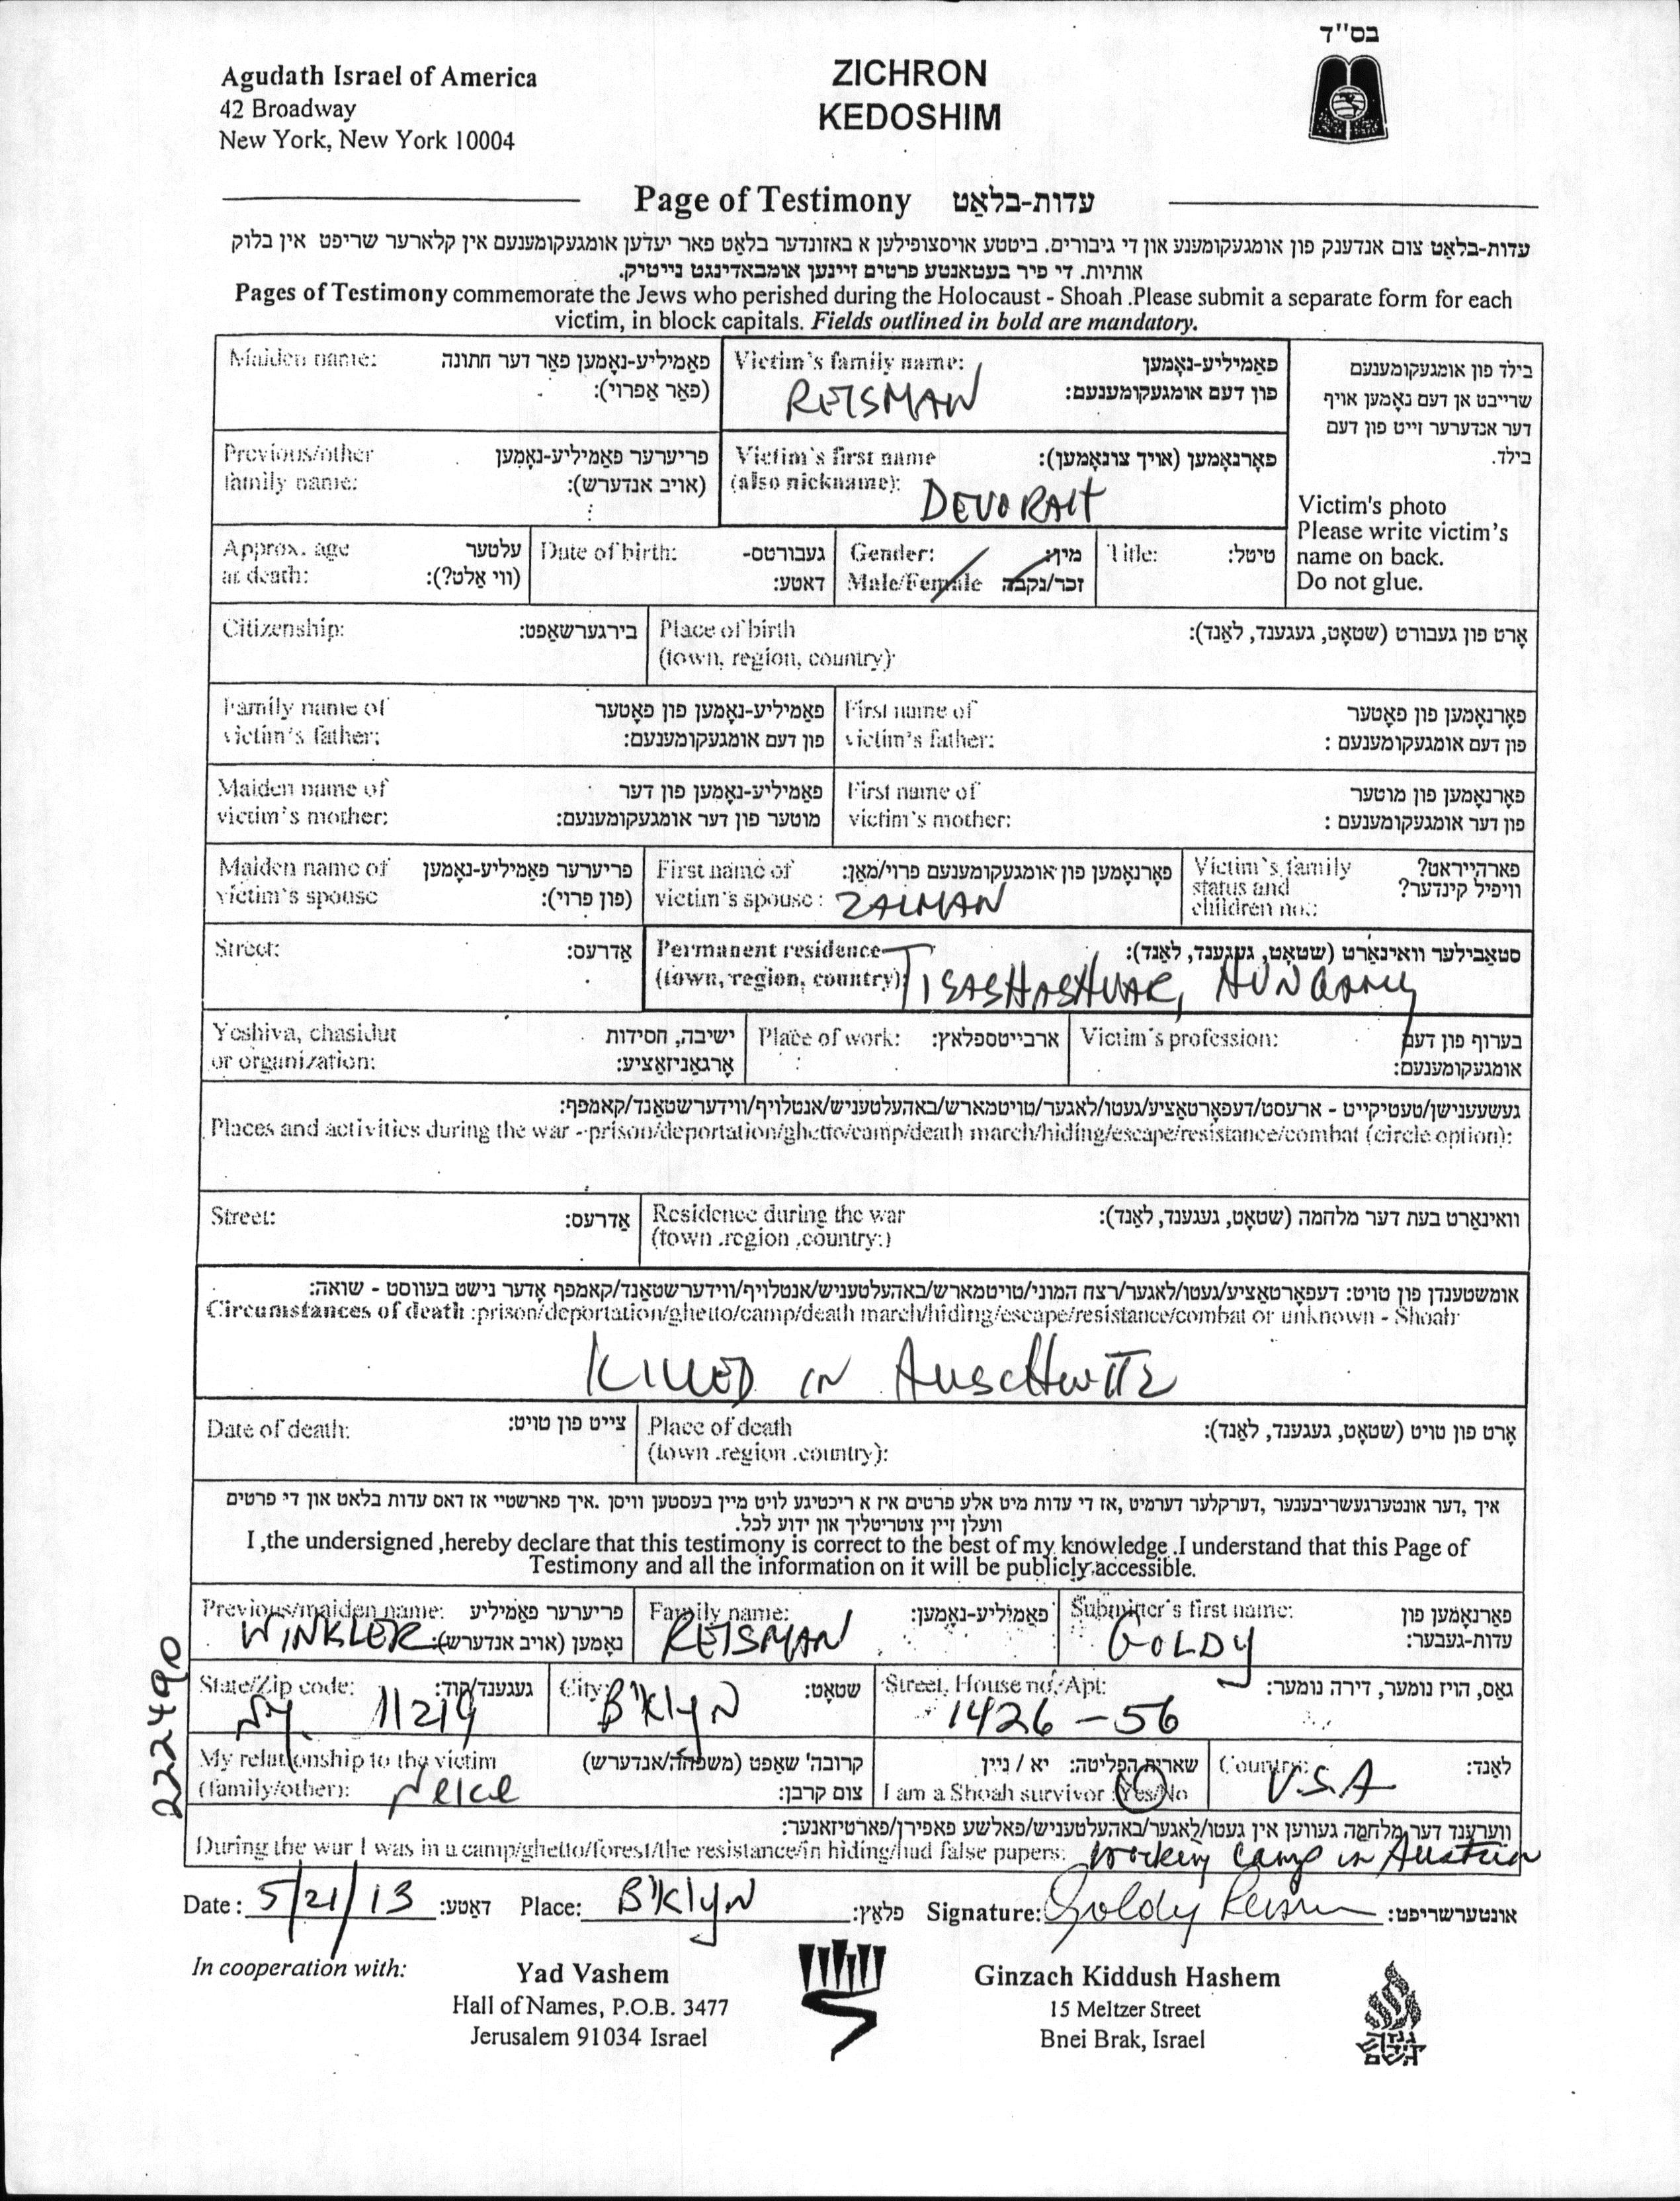 בס"ד
Agudath Israel of America
42 Broadway
New York, New York 10004
ZICHRON
KEDOSHIM
Page of Testimony עדות-בלאַט
עדות-בלאַט צום אנדענק פון אומגעקומענע און די גיבורים. ביטטע אויסצופילען א באזונדער בלאט פאר יעדען אומגעקומענעם אין קלארער שריפט אין בלוק
אותיות. די פיר בעטאנטע פרטים זיינען אומבאדינגט נייטיק.
Pages of Testimony commemorate the Jews who perished during the Holocaust - Shoah .Please submit a separate form for each
victim, in block capitals. Fields outlined in bold are mandatory.
Maiden name: פאַמיליע-נאָמען פאַר דער חתונה
(פאַר אַפרוי):
Victim's family name: פאַמיליע-נאָמען
פון דעם אומגעקומענעם:
REISMAN
בילד פון אומגעקומענעם
שרייבט אן דעם נאָמען אויף
דער אנדערער זייט פון דעם
בילד.
Victim's photo
Please write victim's
name on back.
Do not glue.
Previous/other פריערער פאַמיליע-נאָמען
family name: (אויב אנדערש):
Victim's first name פאָרנאָמען (אויך צונאָמען):
(also nickname): DEVORAH
Approx. age עלטער
at death: (ווי אַלט?):
Date of birth: געבורטס-
דאטע:
Gender: מין:
Male/Female זכר/נקבה
Title: טיטל:
Citizenship: בירגערשאַפט:
Place of birth אָרט פון געבורט (שטאָט, געגענד, לאַנד):
(town, region, country):
Family name of פאַמיליע-נאָמען פון פאָטער
victim's father: פון דעם אומגעקומענעם:
First name of פאָרנאָמען פון פאָטער
victim's father: פון דעם אומגעקומענעם :
Maiden name of פאַמיליע-נאָמען פון דער
victim's mother: מוטער פון דער אומגעקומענעם:
First name of פאָרנאָמען פון מוטער
victim's mother: פון דער אומגעקומענעם :
Maiden name of פריערער פאַמיליע-נאָמען
victim's spouse (פון פרוי):
First name of פאָרנאָמען פון אומגעקומענעם פרוי/מאַן:
victim's spouse : ZALMAN
Victim's family פארהייראט?
status and וויפיל קינדער?
children no.:
Street: אַדרעס:
Permanent residence סטאַבילער וואינאָרט (שטאָט, געגענד, לאַנד):
(town, region, country): TISASHASHVAR, HUNGARY
Yeshiva, chasidut ישיבה, חסידות
or organization: אָרגאַניזאַציע:
Place of work: ארבייטספלאץ:
Victim's profession: בערוף פון דעם
אומגעקומענעם:
געשעענישן/טעטיקייט - ארעסט/דעפאָרטאַציע/געטו/לאגער/טויטמארש/באהעלטעניש/אנטלויף/ווידערשטאַנד/קאמפף:
Places and activities during the war - prison/deportation/ghetto/camp/death march/hiding/escape/resistance/combat (circle option):
Street: אַדרעס:
Residence during the war וואינאַרט בעת דער מלחמה (שטאָט, געגענד, לאַנד):
(town .region .country:)
אומשטענדן פון טויט: דעפאָרטאַציע/געטו/לאגער/רצח המוני/טויטמארש/באהעלטעניש/אנטלויף/ווידערשטאַנד/קאמפף אָדער נישט בעווסט - שואה:
Circumstances of death :prison/deportation/ghetto/camp/death march/hiding/escape/resistance/combat or unknown - Shoah
KILLED IN AUSCHWITZ
Date of death: צייט פון טויט:
Place of death אָרט פון טויט (שטאָט, געגענד, לאַנד):
(town .region .country):
איך ,דער אונטערגעשריבענער ,דערקלער דערמיט ,אז די עדות מיט אלע פרטים איז א ריכטיגע לויט מיין בעסטען וויסן .איך פארשטיי אז דאס עדות בלאט און די פרטים
וועלן זיין צוטריטליך און ידוע לכל.
I ,the undersigned ,hereby declare that this testimony is correct to the best of my knowledge .I understand that this Page of
Testimony and all the information on it will be publicly accessible.
Previous/maiden name: פריערער פאַמיליע
WINKLER נאָמען (אויב אנדערש):
Family name: פאַמיליע-נאָמען:
REISMAN
Submitter's first name: פאַרנאָמען פון
עדות-געבער:
GOLDY
State/Zip code: געגענד/קוד:
NY 11219
City: שטאָט:
B'klyN
Street, House no, Apt: גאס, הויז נומער, דירה נומער:
1426 - 56
My relationship to the victim קרובה' שאפט (משפחה/אנדערש)
(family/other): Neice צום קרבן:
שארית הפליטה: יא / ניין
I am a Shoah survivor :Yes/No
Country: לאַנד:
U.S.A
ווערענד דער מלחמה געווען אין געטו/לאַגער/באהעלטעניש/פאלשע פאפירן/פארטיזאנער:
During the war I was in a camp/ghetto/forest/the resistance/in hiding/had false papers: Working Camp in Austria
Date : 5/21/13 דאַטע: Place: B'klyN פלאַץ: Signature: Goldy Reisman אונטערשריפט:
222490
In cooperation with:
Yad Vashem
Hall of Names, P.O.B. 3477
Jerusalem 91034 Israel
Ginzach Kiddush Hashem
15 Meltzer Street
Bnei Brak, Israel
גנזך
קידוש
השם